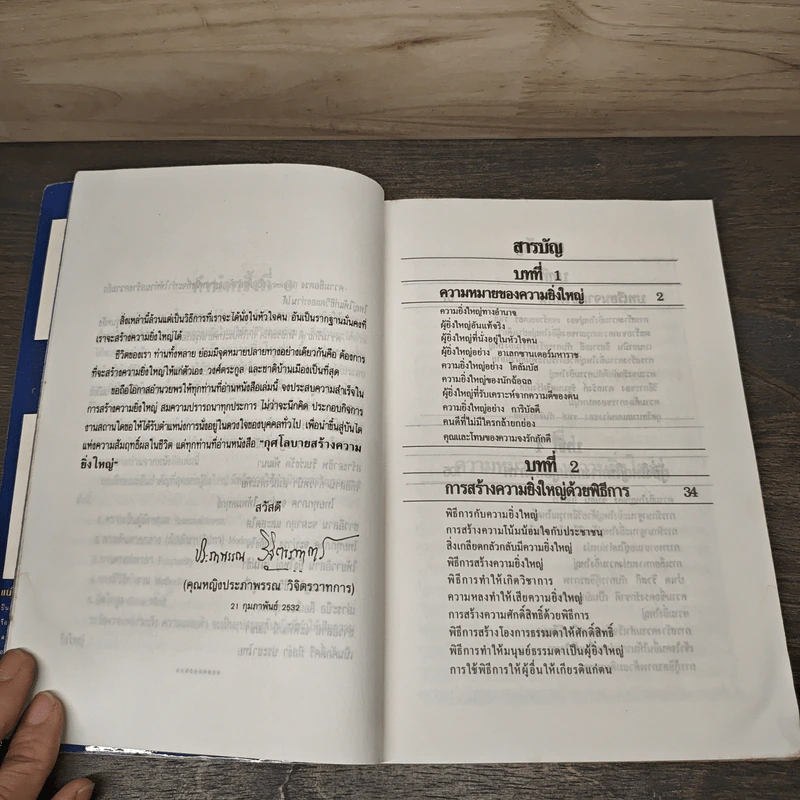 สิ่งเหล่านี้ล้วนแต่เป็นวิธีการที่เราจะได้นั่งในหัวใจคน อันเป็นรากฐานมั่นคงที่
เราจะสร้างความยิ่งใหญ่ได้
ชีวิตของเรา ท่านทั้งหลาย ย่อมมีจุดหมายปลายทางอย่างเดียวกันคือ ต้องการ
ที่จะสร้างความยิ่งใหญ่ให้แก่ตัวเอง วงศ์ตระกูล และชาติบ้านเมืองเป็นที่สุด
ขอถือโอกาสอำนวยพรให้ทุกท่านที่อ่านหนังสือเล่มนี้ จงประสบความสำเร็จใน
การสร้างความยิ่งใหญ่ สมความปรารถนาทุกประการ ไม่ว่าจะนึกคิด ประกอบกิจการ
งานสถานใดขอให้ได้รับตำแหน่งการนั่งอยู่ในดวงใจของบุคคลทั่วไป เพื่อนำขึ้นสู่บันใด
แห่งความสัมฤทธิ์ผลในชีวิต แด่ทุกท่านที่อ่านหนังสือ "กุศโลบายสร้างความ
ยิ่งใหญ่"
สวัสดี
ประภาพรรณ วิจิตรวาทการ
(คุณหญิงประภาพรรณ วิจิตรวาทการ)
21 กุมภาพันธ์ 2532
สารบัญ
บทที่ 1
ความหมายของความยิ่งใหญ่ 2
ความยิ่งใหญ่ทางอำนาจ
ผู้ยิ่งใหญ่อันแท้จริง
ผู้ยิ่งใหญ่ที่นั่งอยู่ในหัวใจคน
ผู้ยิ่งใหญ่อย่าง อาเลกซานเดอร์มหาราช
ความยิ่งใหญ่อย่าง โคลัมบัส
ความยิ่งใหญ่ของนักฉ้อฉล
ผู้ยิ่งใหญ่ที่รับเคราะห์จากความดีของตน
ความยิ่งใหญ่อย่าง การิบัลดี
คนดีที่ไม่มีใครกล้ายกย่อง
คุณและโทษของความจงรักภักดี
บทที่ 2
การสร้างความยิ่งใหญ่ด้วยพิธีการ 34
พิธีการกับความยิ่งใหญ่
การสร้างความโน้มน้อมใจกับประชาชน
สิ่งเกลียดกลัวกลับมีความยิ่งใหญ่
พิธีการสร้างความยิ่งใหญ่
พิธีการทำให้เกิดวิชาการ
ความหลงทำให้เสียความยิ่งใหญ่
การสร้างความศักดิ์สิทธิ์ด้วยพิธีการ
พิธีการสร้างโองการธรรมดาให้ศักดิ์สิทธิ์
พิธีการทำให้มนุษย์ธรรมดาเป็นผู้ยิ่งใหญ่
การใช้พิธีการให้ผู้อื่นให้เกียรติแก่ตน